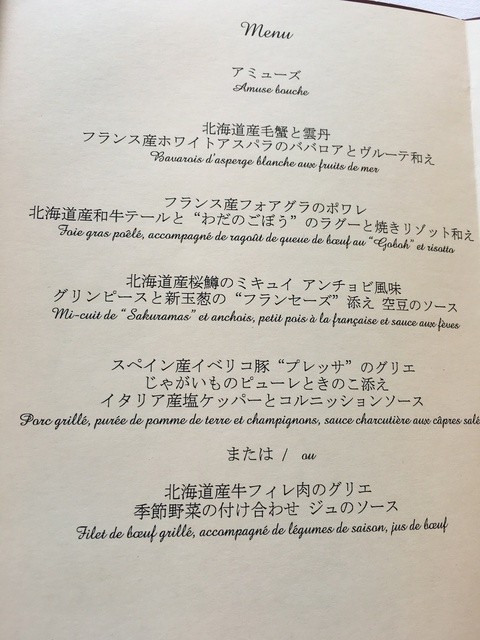 Menu
アミューズ
Amuse bouche
北海道産毛蟹と雲丹
フランス産ホワイトアスパラのババロアとヴルーテ和え
Bavarois d'asperge blanche aux fruits de mer
フランス産フォアグラのポワレ
北海道産和牛テールと“わだのごぼう”のラグーと焼きリゾット和え
Foie gras poêlé, accompagné de ragoût de queue de bœuf au "Goboh" et risotto
北海道産桜鱒のミキュイ アンチョビ風味
グリンピースと新玉葱の“フランセーズ”添え 空豆のソース
Mi-cuit de "Sakuramas" et anchois, petit pois à la française et sauce aux fèves
スペイン産イベリコ豚“プレッサ”のグリエ
じゃがいものピューレときのこ添え
イタリア産塩ケッパーとコルニッションソース
Porc grillé, purée de pomme de terre et champignons, sauce charcutière aux câpres salé
または / ou
北海道産牛フィレ肉のグリエ
季節野菜の付け合わせ ジュのソース
Filet de bœuf grillé, accompagné de légumes de saison, jus de bœuf